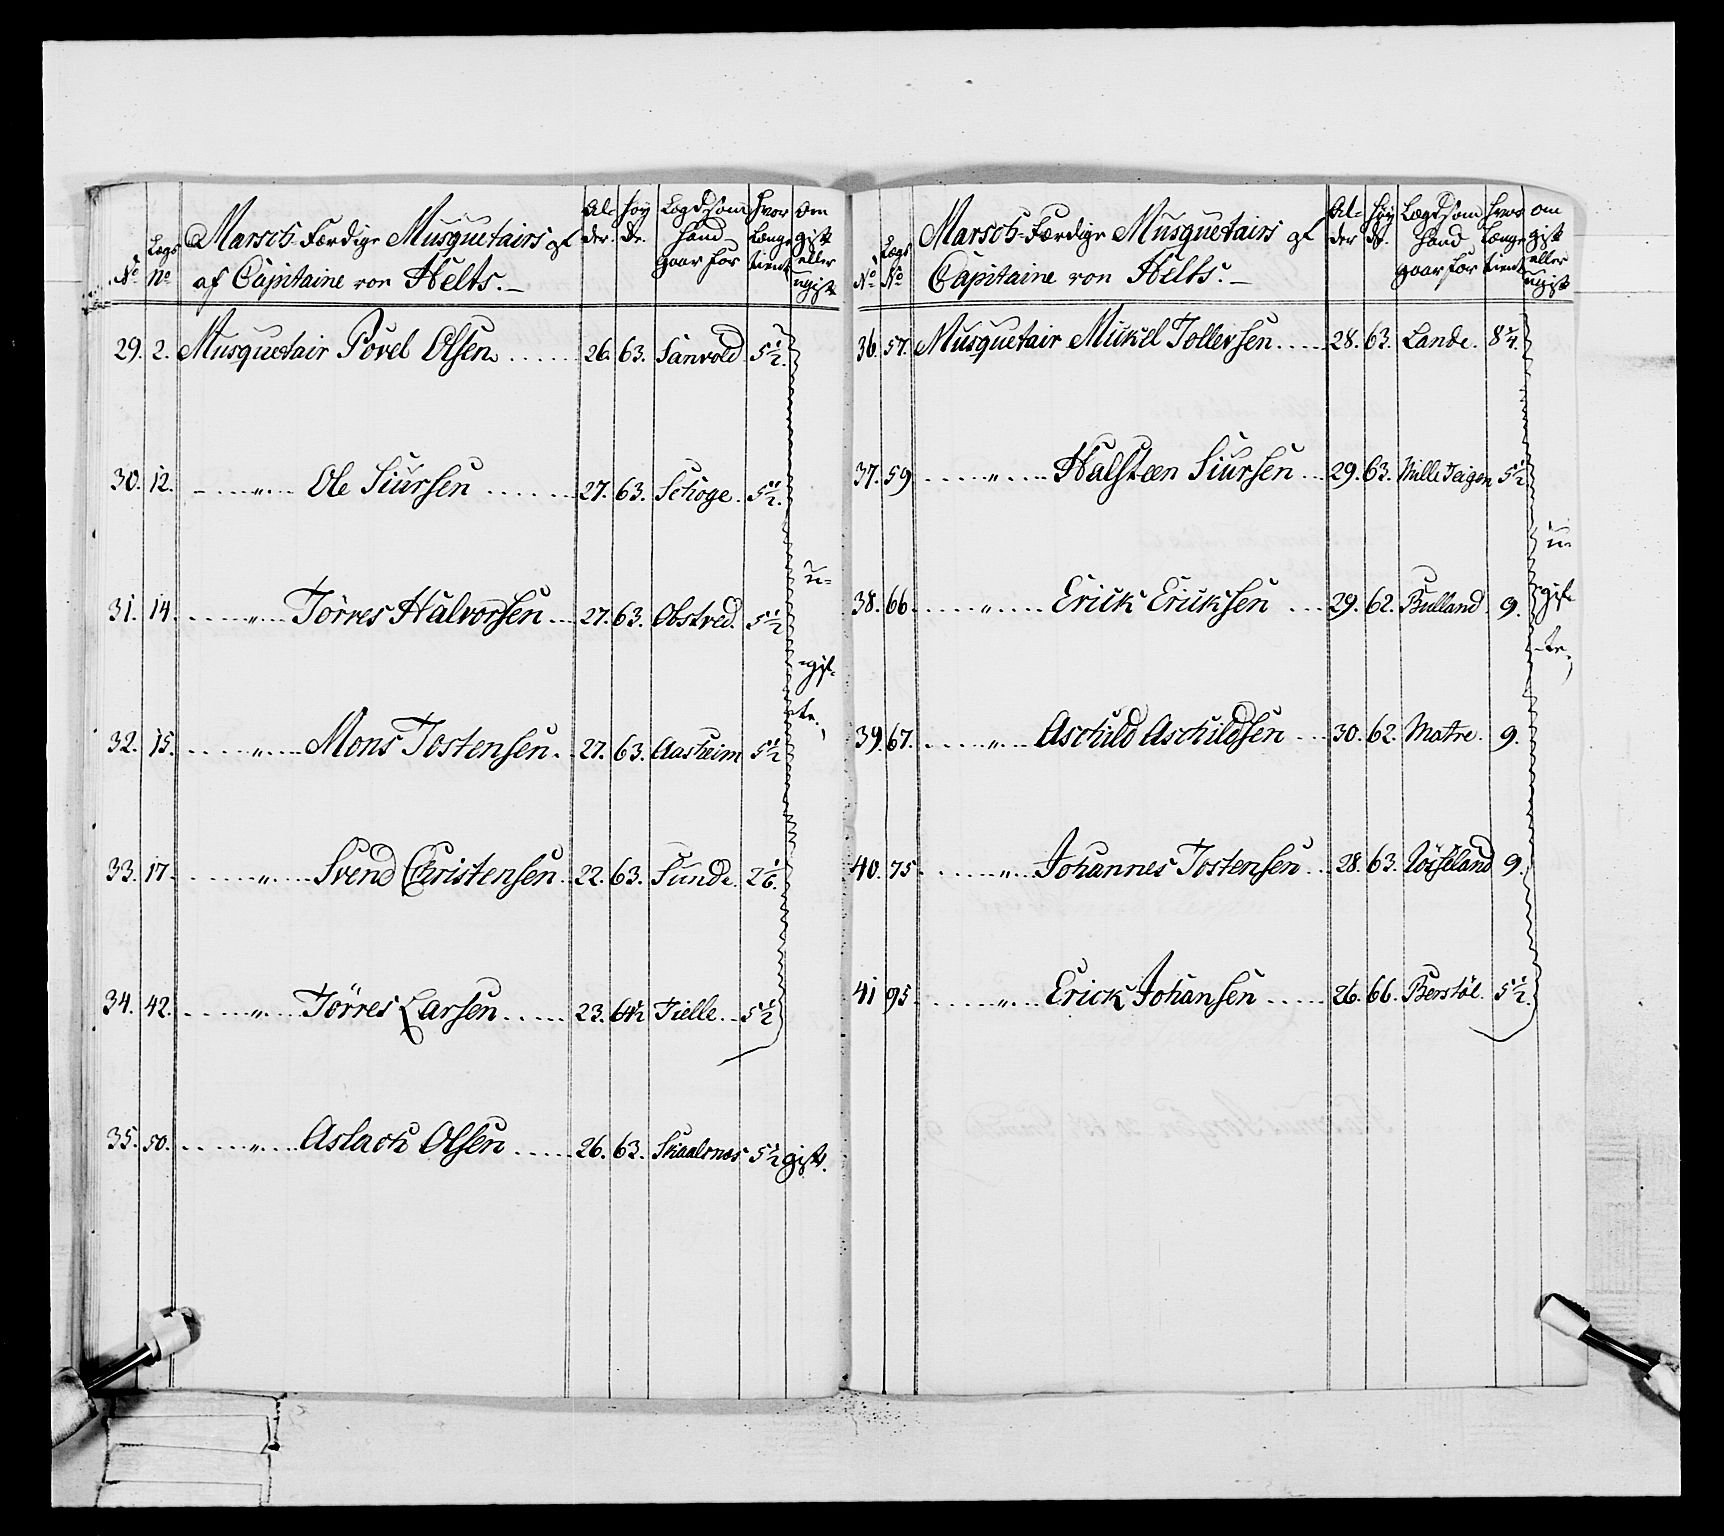 No Legs No Marsch-Færdige Musquetairs af af Capitaine von Helts. Al-der. Høy de. Lægd som hand gaar for hvor længe tient om gift eller ugift
29. 2. Musquetair Povel Olsen 26. 63. Sanvold 5 1/2.
30. 12. " Ole Siursen 27. 63. Schoge. 5 1/2.
31. 14. " Törres Halvorsen 27. 63. Obstved. 5 1/2
32. 15. " Mons Tostensen 27. 63. Aasheim 5 1/2
33. 17. " Svend Christensen 22. 63. Sunde. 2 1/6.
34. 42. " Törres Larsen 23. 64 1/2 Tielle. 5 1/2
u-
-gif-
-te.
35. 50. " Aslach Olsen 26. 63. Skaalnæs 5 1/2 gift.
No Legs No Marsch-Færdige Musquetairs af Capitaine von Helts. Al-der Høy de. Lægd som hand gaar for hvor længe tient om gift eller ugift
36. 57. Musquetair Mickel Tollevsen 28. 63. Lande. 8 1/4.
37. 59 " Halsteen Siursen 29. 63. Mille Teigen 5 1/2
38. 66. " Erick Ericksen 29. 62. Bulland. 9.
39. 67. " Aschild Aschildsen 30. 62. Matre. 9.
40. 75. " Johannes Tostensen 28. 63. 9.
41 95. " Erick Johansen 26. 66. Berstöl. 5 1/2.
u-
-gif-
-te.